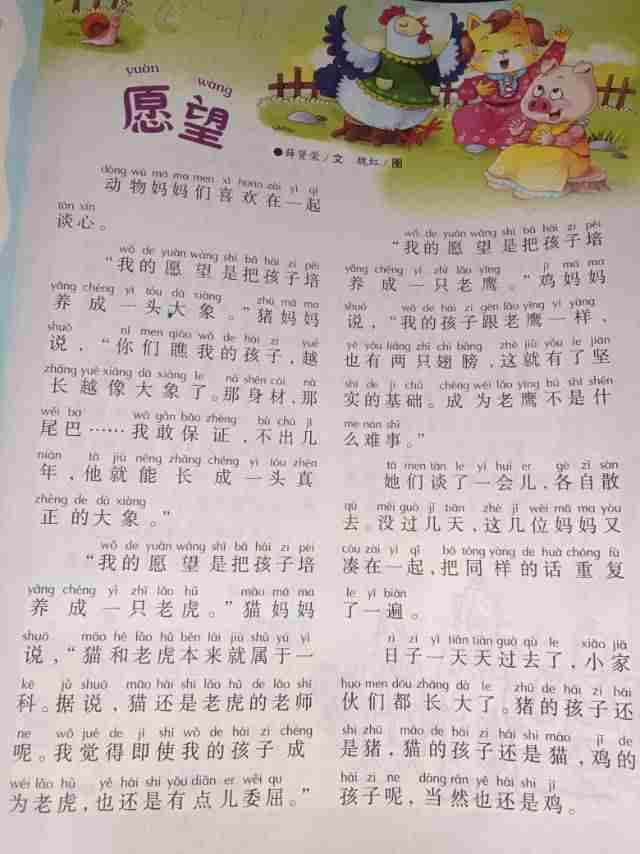 yuàn wàng
愿望
●薛贤荣/文 魏红/图
dòng wù mā ma men xǐ huan zài yì qǐ
动物妈妈们喜欢在一起
tán xīn
谈心。
wǒ de yuàn wàng shì bǎ hái zi péi
“我的愿望是把孩子培
yǎng chéng yì tóu dà xiàng zhū mā ma
养成一头大象。”猪妈妈
shuō nǐ men qiáo wǒ de hái zi yuè
说，“你们瞧我的孩子，越
zhǎng yuè xiàng dà xiàng le nà shēn cái nà
长越像大象了。那身材，那
wěi ba wǒ gǎn bǎo zhèng bù chū jǐ
尾巴……我敢保证，不出几
nián tā jiù néng zhǎng chéng yì tóu zhēn
年，他就能长成一头真
zhèng de dà xiàng
正的大象。”
wǒ de yuàn wàng shì bǎ hái zi péi
“我的愿望是把孩子培
yǎng chéng yì zhī lǎo hǔ māo mā ma
养成一只老虎。”猫妈妈
shuō māo hé lǎo hǔ běn lái jiù shǔ yú yì
说，“猫和老虎本来就属于一
kē jù shuō māo hái shi lǎo hǔ de lǎo shī
科。据说，猫还是老虎的老师
ne wǒ jué de jí shǐ wǒ de hái zi chéng
呢。我觉得即使我的孩子成
wéi lǎo hǔ yě hái shi yǒu diǎn er wěi qu
为老虎，也还是有点儿委屈。”
wǒ de yuàn wàng shì bǎ hái zi péi
“我的愿望是把孩子培
yǎng chéng yì zhī lǎo yīng jī mā ma
养成一只老鹰。”鸡妈妈
shuō wǒ de hái zi gēn lǎo yīng yí yàng
说，“我的孩子跟老鹰一样、
yě yǒu liǎng zhī chì bǎng zhè jiù yǒu le jiān
也有两只翅膀，这就有了坚
shí de jī chǔ chéng wéi lǎo yīng bú shì shén
实的基础。成为老鹰不是什
me nán shì
么难事。”
tā men tán le yí huì er gè zì sàn
她们谈了一会儿，各自散
qù méi guò jǐ tiān zhè jǐ wèi mā ma yòu
去。没过几天，这几位妈妈又
còu zài yì qǐ bǎ tóng yàng de huà chóng fù
凑在一起，把同样的话重复
le yí biàn
了一遍。
rì zi yì tiān tiān guò qù le xiǎo jiā
日子一天天过去了，小家
huo men dōu zhǎng dà le zhū de hái zi hái
伙们都长大了。猪的孩子还
shi zhū māo de hái zi hái shi māo jī de
是猪，猫的孩子还是猫，鸡的
hái zi ne dāng rán yě hái shi jī
孩子呢，当然也还是鸡。